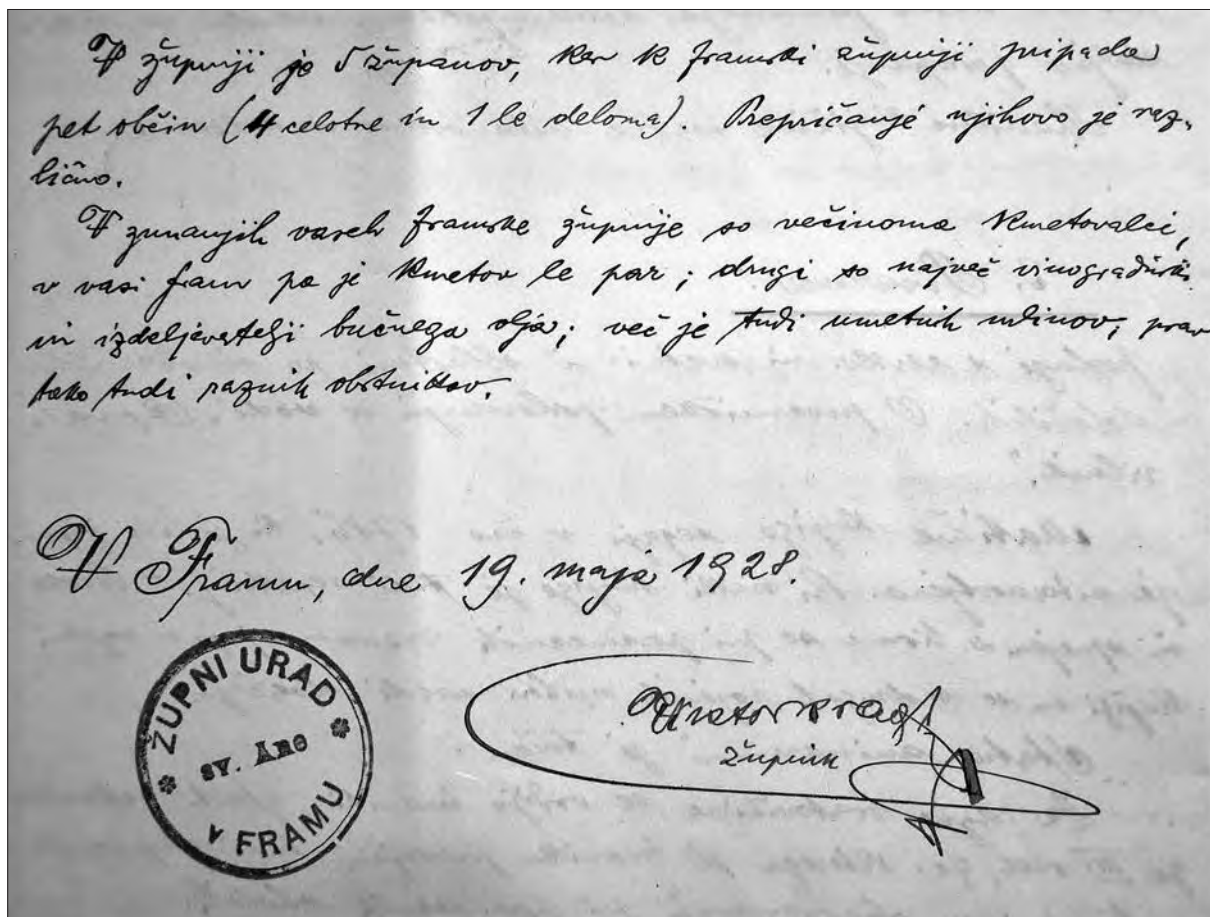 V župniji je 5 županov, ker k framski župniji pripada
pet občin (4 celotne in 1 le deloma). Prepričanje njihovo je raz-
lično.
V zunanjih vaseh framske župnije so večinoma kmetovalci,
v vasi Fram pa je kmetov le par; drugi so največ vinogradniki
in izdeljevatelji bučnega olja; več je tudi umetnih mlinov; prav
tako tudi raznih obrtnikov.
V Framu, dne 19. maja 1928.
ŽUPNI URAD
sv. Ane
v FRAMU
župnik